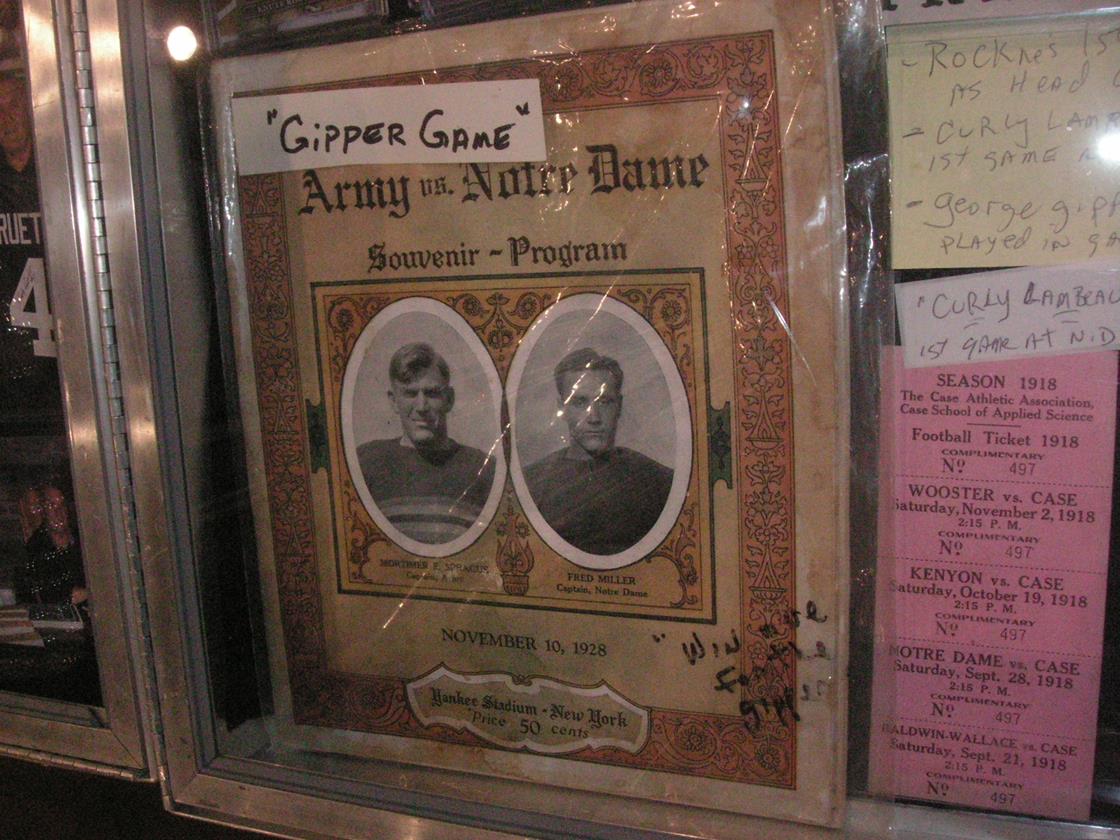 "GIPPER GAME"
Army vs. Notre Dame
Souvenir - Program
MORTIMER E. SPRAGUE
Captain, Army
FRED MILLER
Captain, Notre Dame
NOVEMBER 10, 1928
"Win
Yankee Stadium - New York
Price 50 cents
RUET
4
- ROCKNE'S 1ST
AS HEAD
- CURLY LAM
1ST GAME
- George gip
PLAYED IN GA
"CURLY LAMBEAU
1ST GAME AT N.D
SEASON 1918
The Case Athletic Association,
Case School of Applied Science
Football Ticket 1918
COMPLIMENTARY
No 497
WOOSTER vs. CASE
Saturday, November 2, 1918
2:15 P. M.
COMPLIMENTARY
No 497
KENYON vs. CASE
Saturday, October 19, 1918
2:15 P. M.
COMPLIMENTARY
No 497
NOTRE DAME vs. CASE
Saturday, Sept. 28, 1918
2:15 P. M.
COMPLIMENTARY
No 497
BALDWIN-WALLACE vs. CASE
Saturday, Sept. 21, 1918
2:15 P. M.
COMPLIMENTARY
No 497